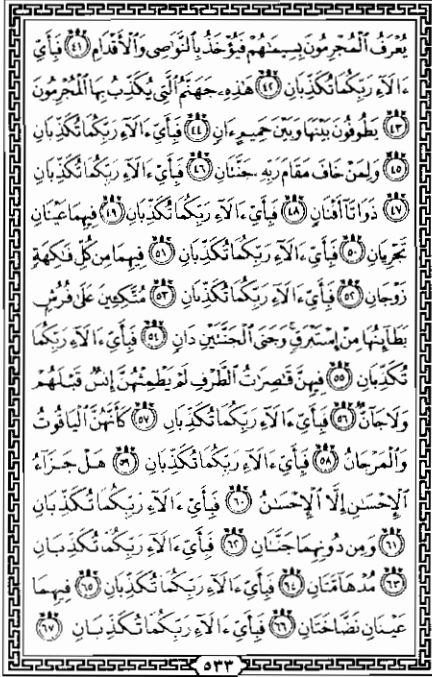 يُعْرَفُ ٱلْمُجْرِمُونَ بِسِيمَٰهُمْ فَيُؤْخَذُ بِٱلنَّوَٰصِي وَٱلْأَقْدَامِ ٤١ فَبِأَيِّ
ءَالَآءِ رَبِّكُمَا تُكَذِّبَانِ ٤٢ هَٰذِهِۦ جَهَنَّمُ ٱلَّتِي يُكَذِّبُ بِهَا ٱلْمُجْرِمُونَ
٤٣ يَطُوفُونَ بَيْنَهَا وَبَيْنَ حَمِيمٍ ءَانٍ ٤٤ فَبِأَيِّ ءَالَآءِ رَبِّكُمَا تُكَذِّبَانِ
٤٥ وَلِمَنْ خَافَ مَقَامَ رَبِّهِۦ جَنَّتَانِ ٤٦ فَبِأَيِّ ءَالَآءِ رَبِّكُمَا تُكَذِّبَانِ
٤٧ ذَوَاتَآ أَفْنَانٍ ٤٨ فَبِأَيِّ ءَالَآءِ رَبِّكُمَا تُكَذِّبَانِ ٤٩ فِيهِمَا عَيْنَانِ
تَجْرِيَانِ ٥٠ فَبِأَيِّ ءَالَآءِ رَبِّكُمَا تُكَذِّبَانِ ٥١ فِيهِمَا مِن كُلِّ فَٰكِهَةٍ
زَوْجَانِ ٥٢ فَبِأَيِّ ءَالَآءِ رَبِّكُمَا تُكَذِّبَانِ ٥٣ مُتَّكِـِٔينَ عَلَىٰ فُرُشٍۭ
بَطَآئِنُهَا مِنْ إِسْتَبْرَقٍ ۚ وَجَنَى ٱلْجَنَّتَيْنِ دَانٍ ٥٤ فَبِأَيِّ ءَالَآءِ رَبِّكُمَا
تُكَذِّبَانِ ٥٥ فِيهِنَّ قَٰصِرَٰتُ ٱلطَّرْفِ لَمْ يَطْمِثْهُنَّ إِنسٌ قَبْلَهُمْ
وَلَا جَآنٌّ ٥٦ فَبِأَيِّ ءَالَآءِ رَبِّكُمَا تُكَذِّبَانِ ٥٧ كَأَنَّهُنَّ ٱلْيَاقُوتُ
وَٱلْمَرْجَانُ ٥٨ فَبِأَيِّ ءَالَآءِ رَبِّكُمَا تُكَذِّبَانِ ٥٩ هَلْ جَزَآءُ
ٱلْإِحْسَٰنِ إِلَّا ٱلْإِحْسَٰنُ ٦٠ فَبِأَيِّ ءَالَآءِ رَبِّكُمَا تُكَذِّبَانِ
٦١ وَمِن دُونِهِمَا جَنَّتَانِ ٦٢ فَبِأَيِّ ءَالَآءِ رَبِّكُمَا تُكَذِّبَانِ
٦٣ مُدْهَآمَّتَانِ ٦٤ فَبِأَيِّ ءَالَآءِ رَبِّكُمَا تُكَذِّبَانِ ٦٥ فِيهِمَا
عَيْنَانِ نَضَّاخَتَانِ ٦٦ فَبِأَيِّ ءَالَآءِ رَبِّكُمَا تُكَذِّبَانِ ٦٧
٥٣٣